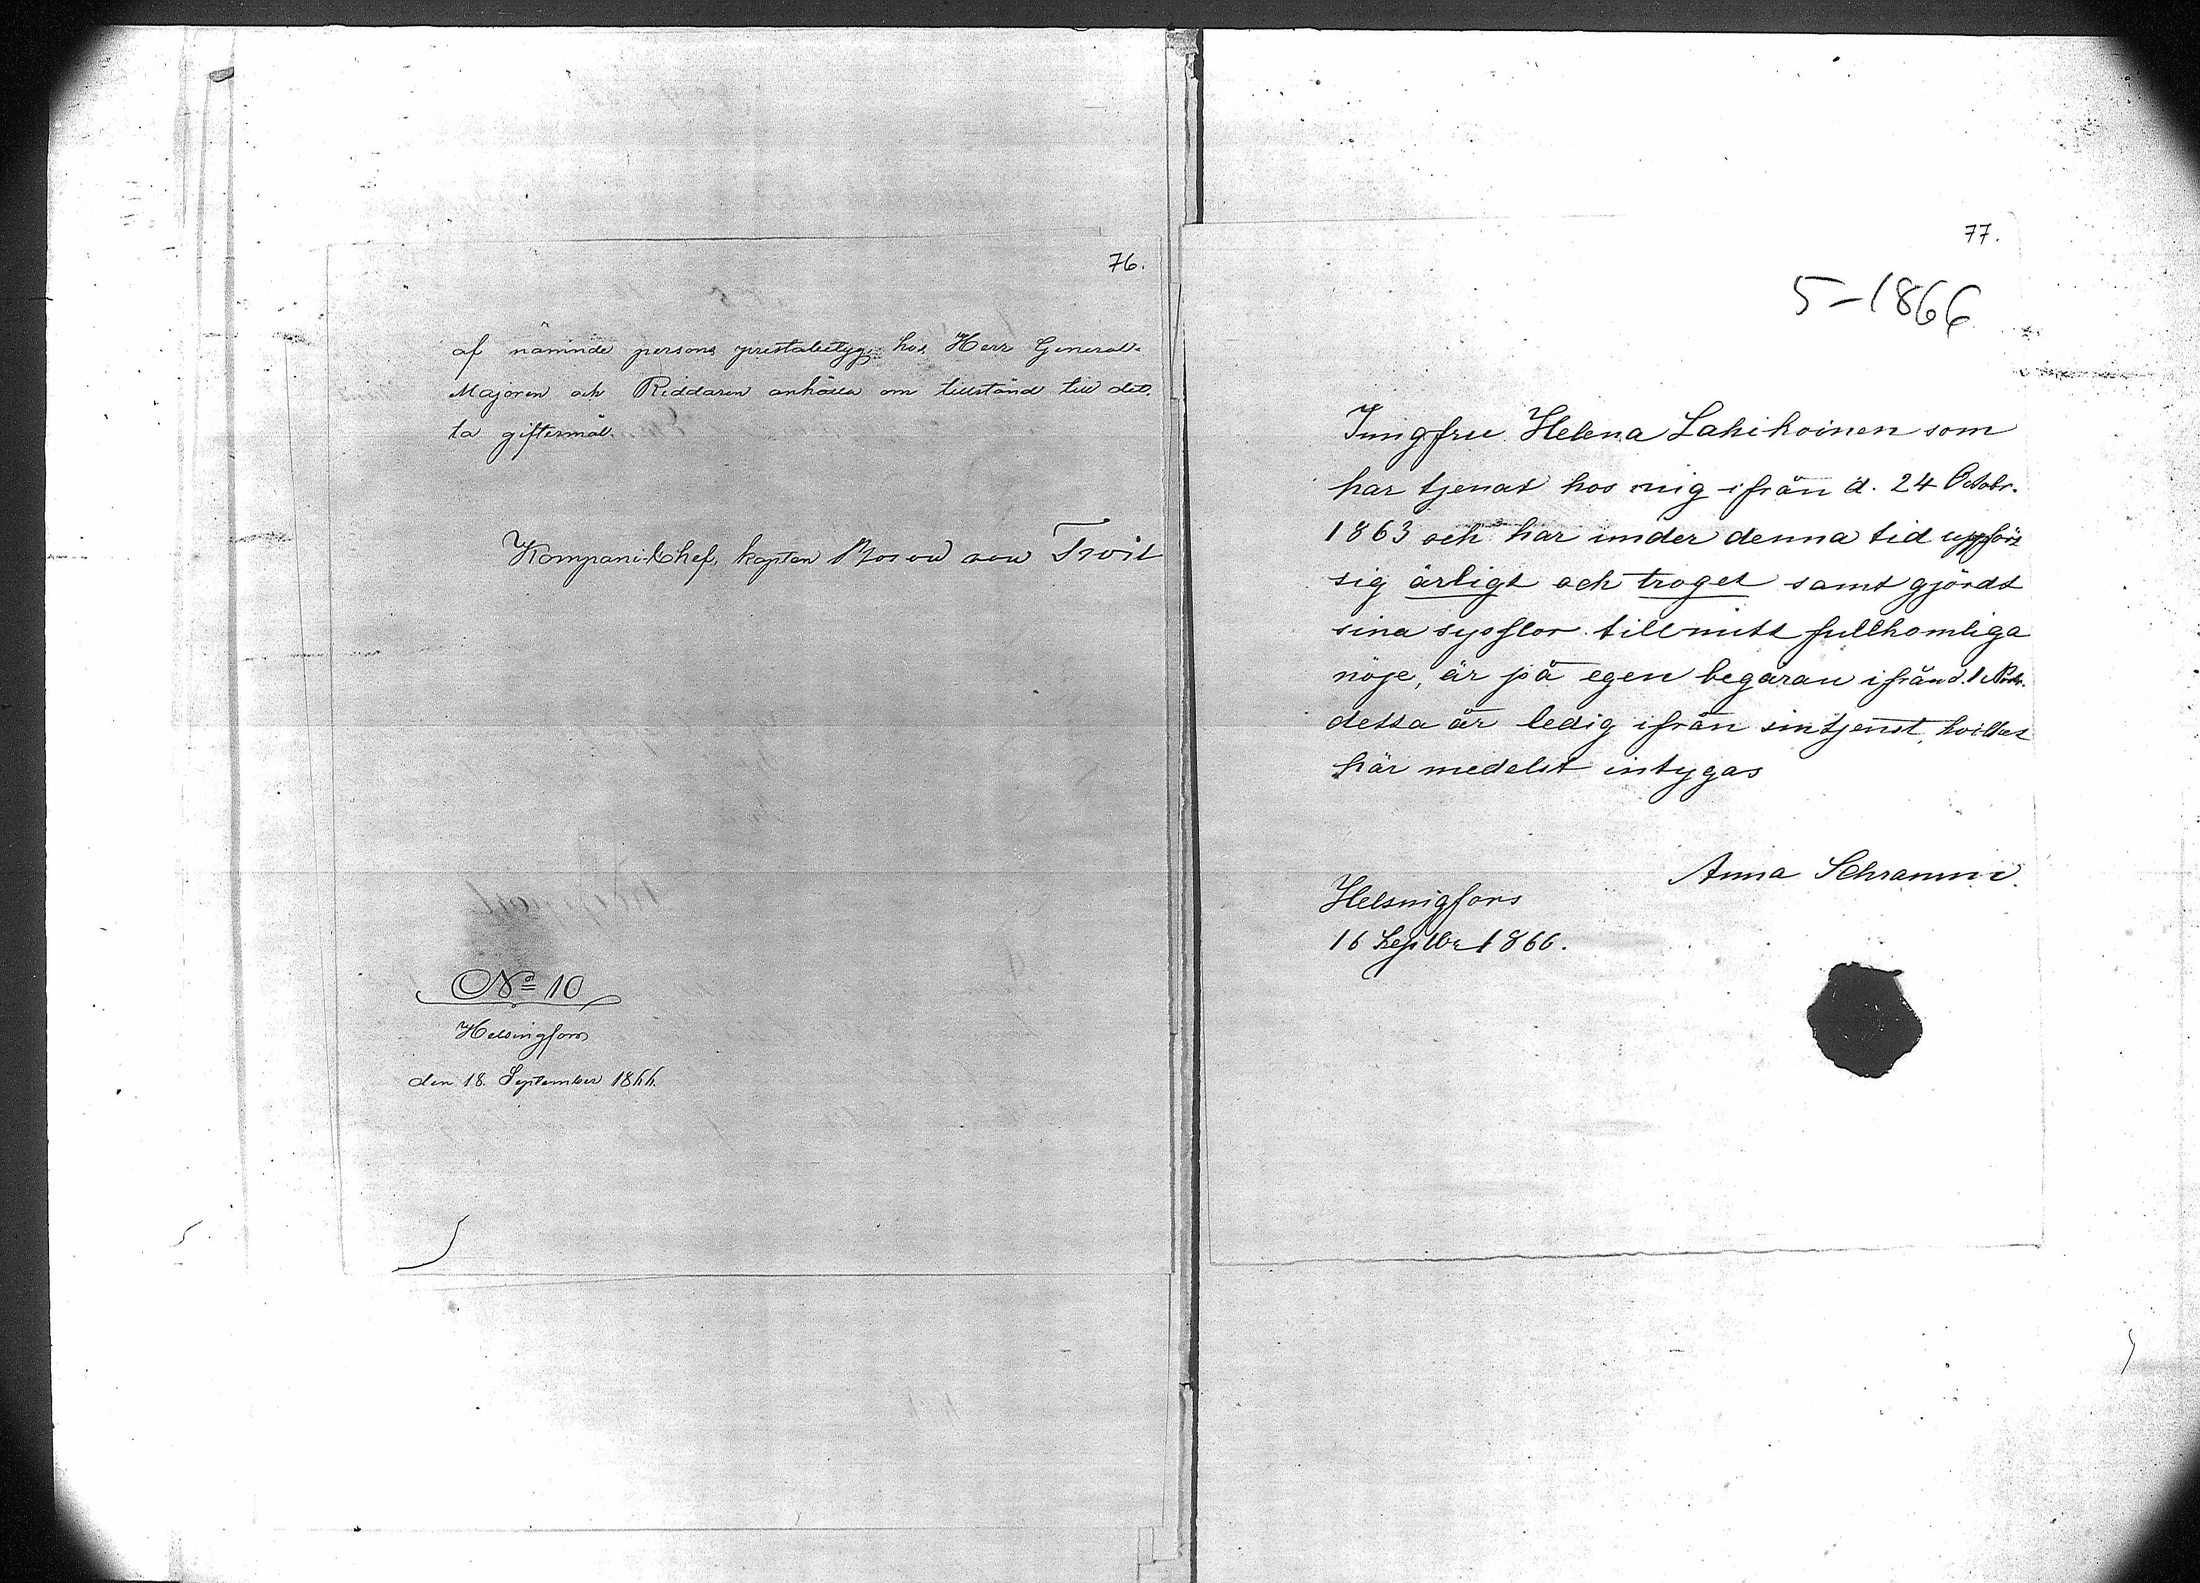 76.
af nämnde persons prestabetyg, hos Herr General-
Majoren och Riddaren anhålla om tillstånd till det-
ta giftermål.
Kompani-Chef, kapten
No 10
Helsingfors
den 18. September 1866.
77.
5-1866
Jungfru Helena Lahikoinen som
har tjenat hos mig ifrån d. 24 Octobr.
1863 och har under denna tid uppfört
sig ärligt och troget samt gjördt
sina sysslor till mitt fullkomliga
nöje, är på egen begäran ifrån d. 1
detta år ledig ifrån sin tjenst, hvilket
här medelst intygas
Anna Schramm
Helsingfors
16 Septbr 1866.